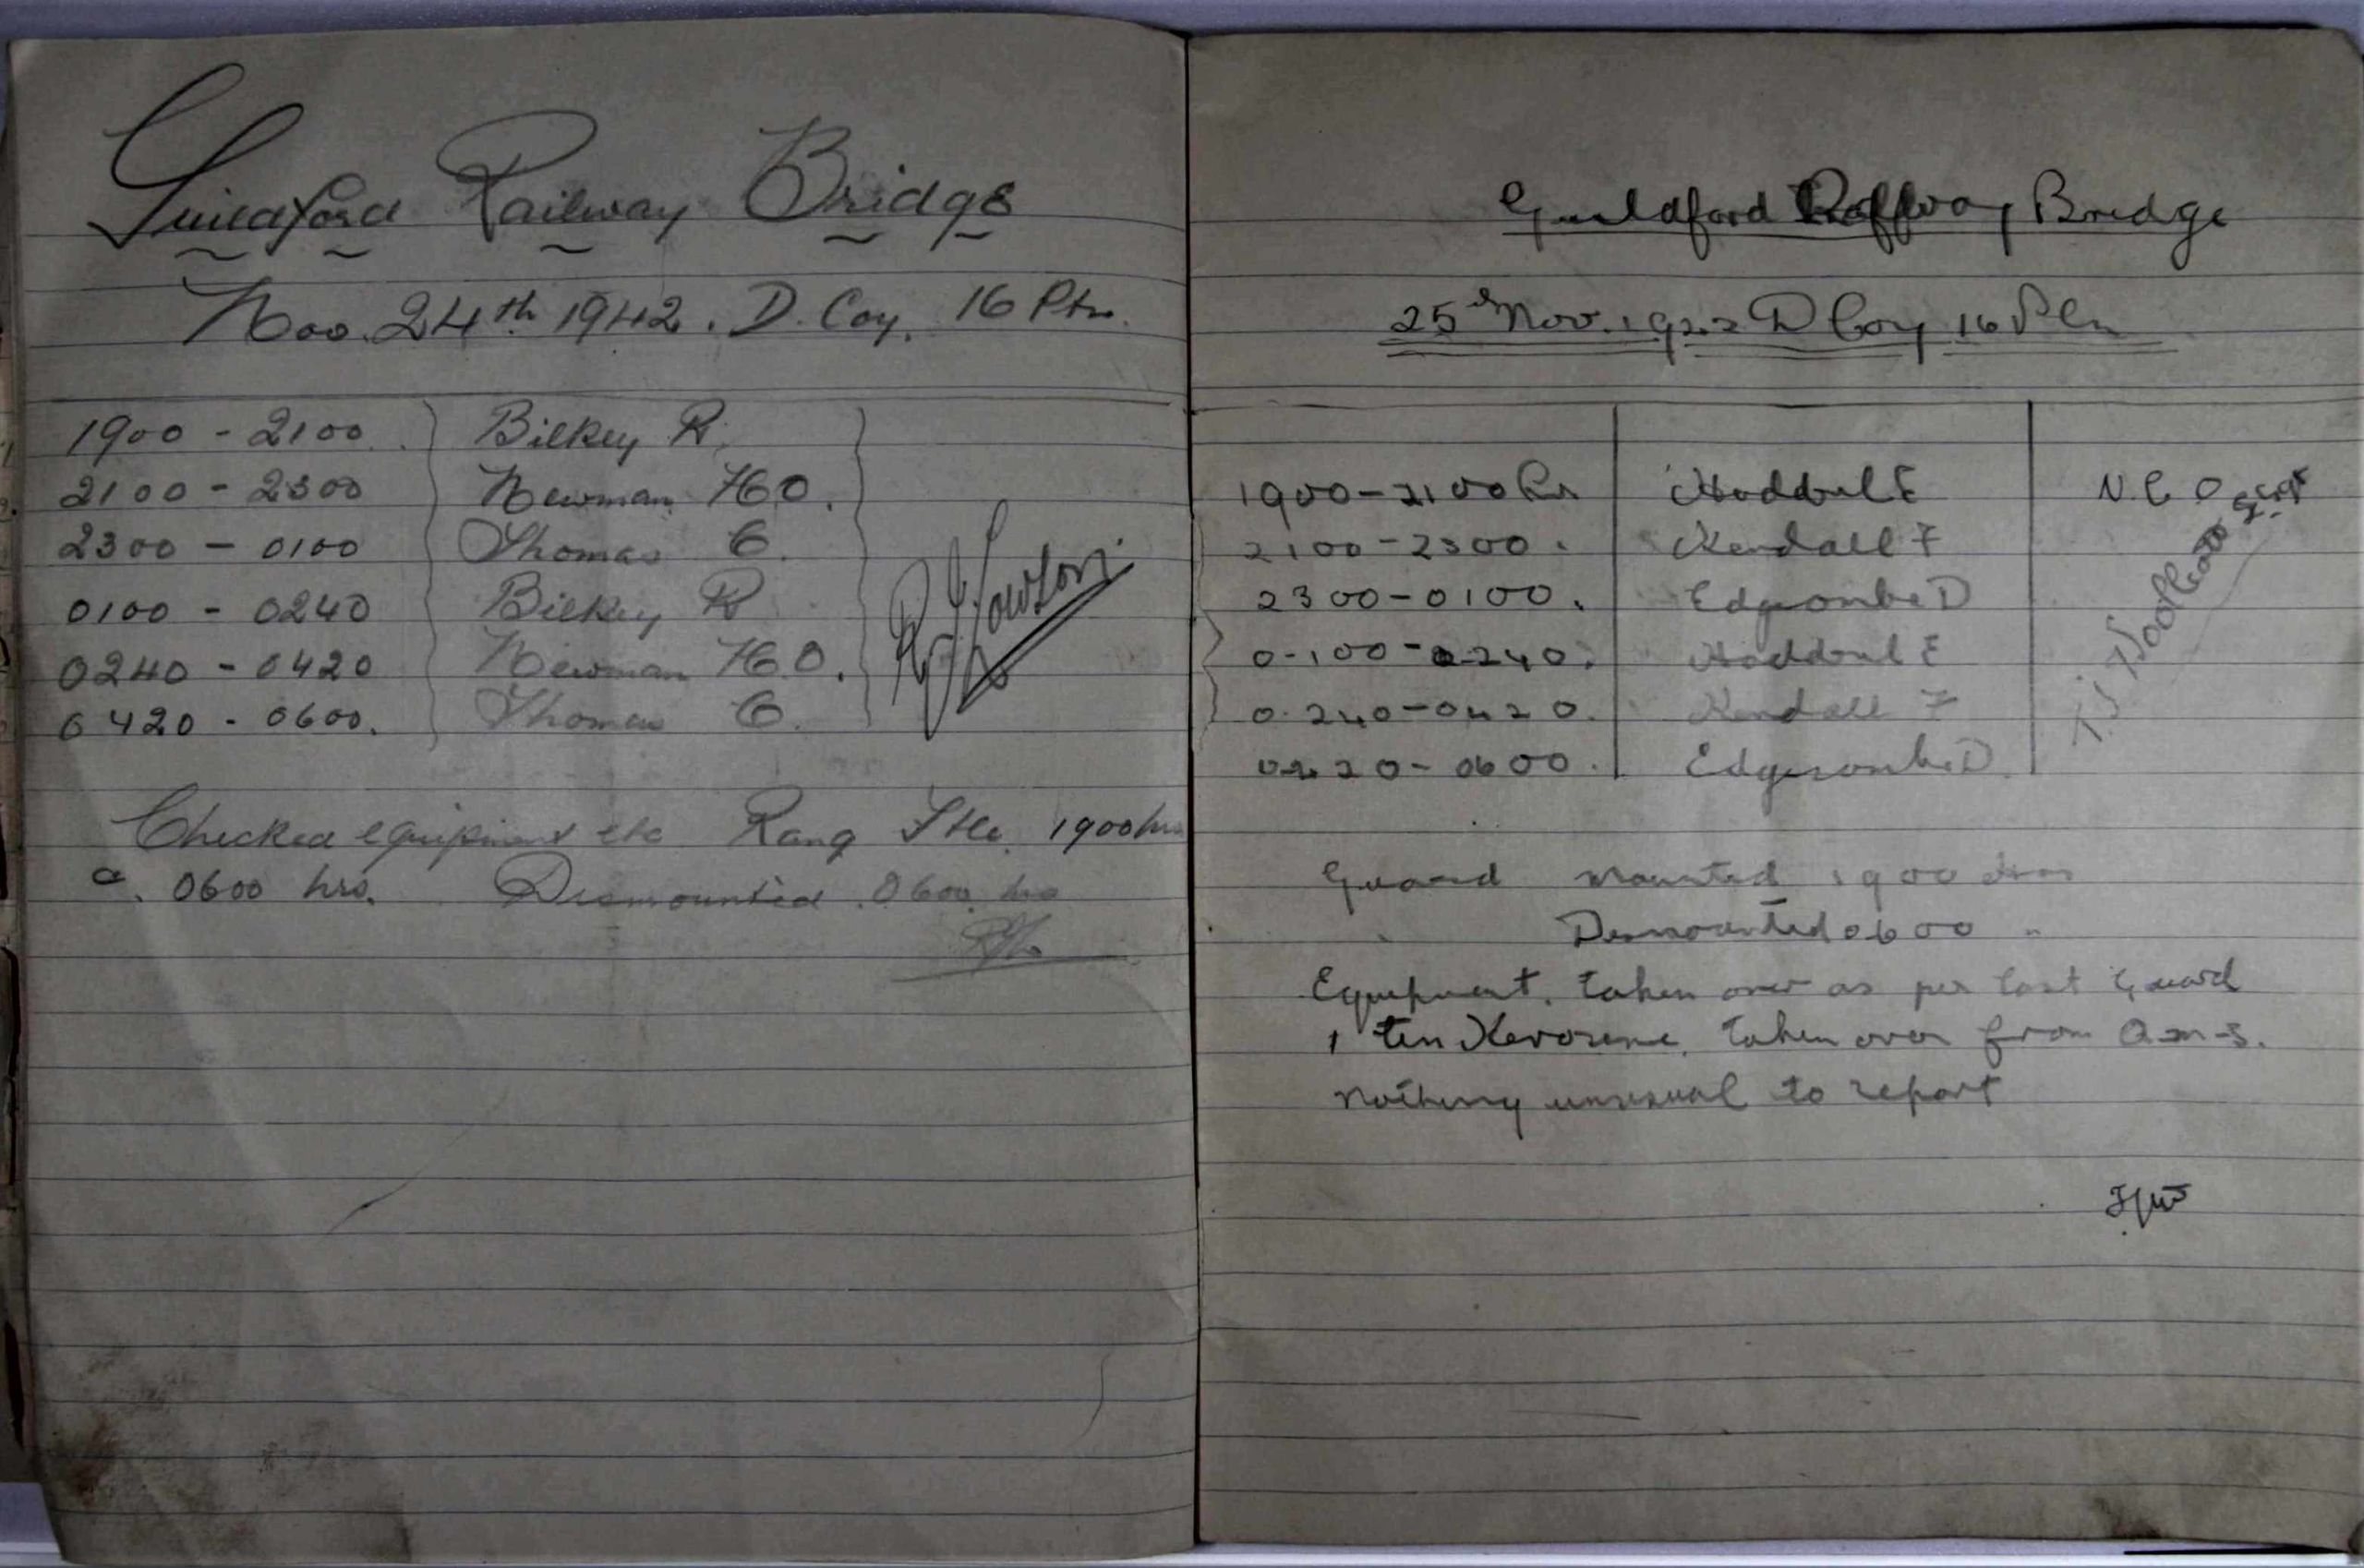 Guildford Railway Bridge
Nov. 24th 1942. D. Coy. 16 Ptn.
1900 - 2100 Bilkey R.
2100 - 2300 Newman H O.
2300 - 0100 Thomas C.
0100 - 0240 Bilkey R
0240 - 0420 Newman H O.
0420 - 0600. Thomas C.
Checked equipment etc Rang 1900 hrs
0600 hrs. Dismounted 0600 hrs
Guildford Railway Bridge
25th Nov. 1942 D Coy 16 Pln
1900 - 2100 Hrs Hoddnal E N.C.O
2100 - 2300. Kendall F
2300 - 0100. Edgcombe D
0100 - 0240. Hoddnal E
0240 - 0420. Kendall F
0420 - 0600. Edgecombe D.
Guard mounted 1900 hrs
Dismounted 0600 "
Equipment. taken over as per last Guard
1 tin Kerosene. taken over from Q.M.S.
Nothing unusual to report